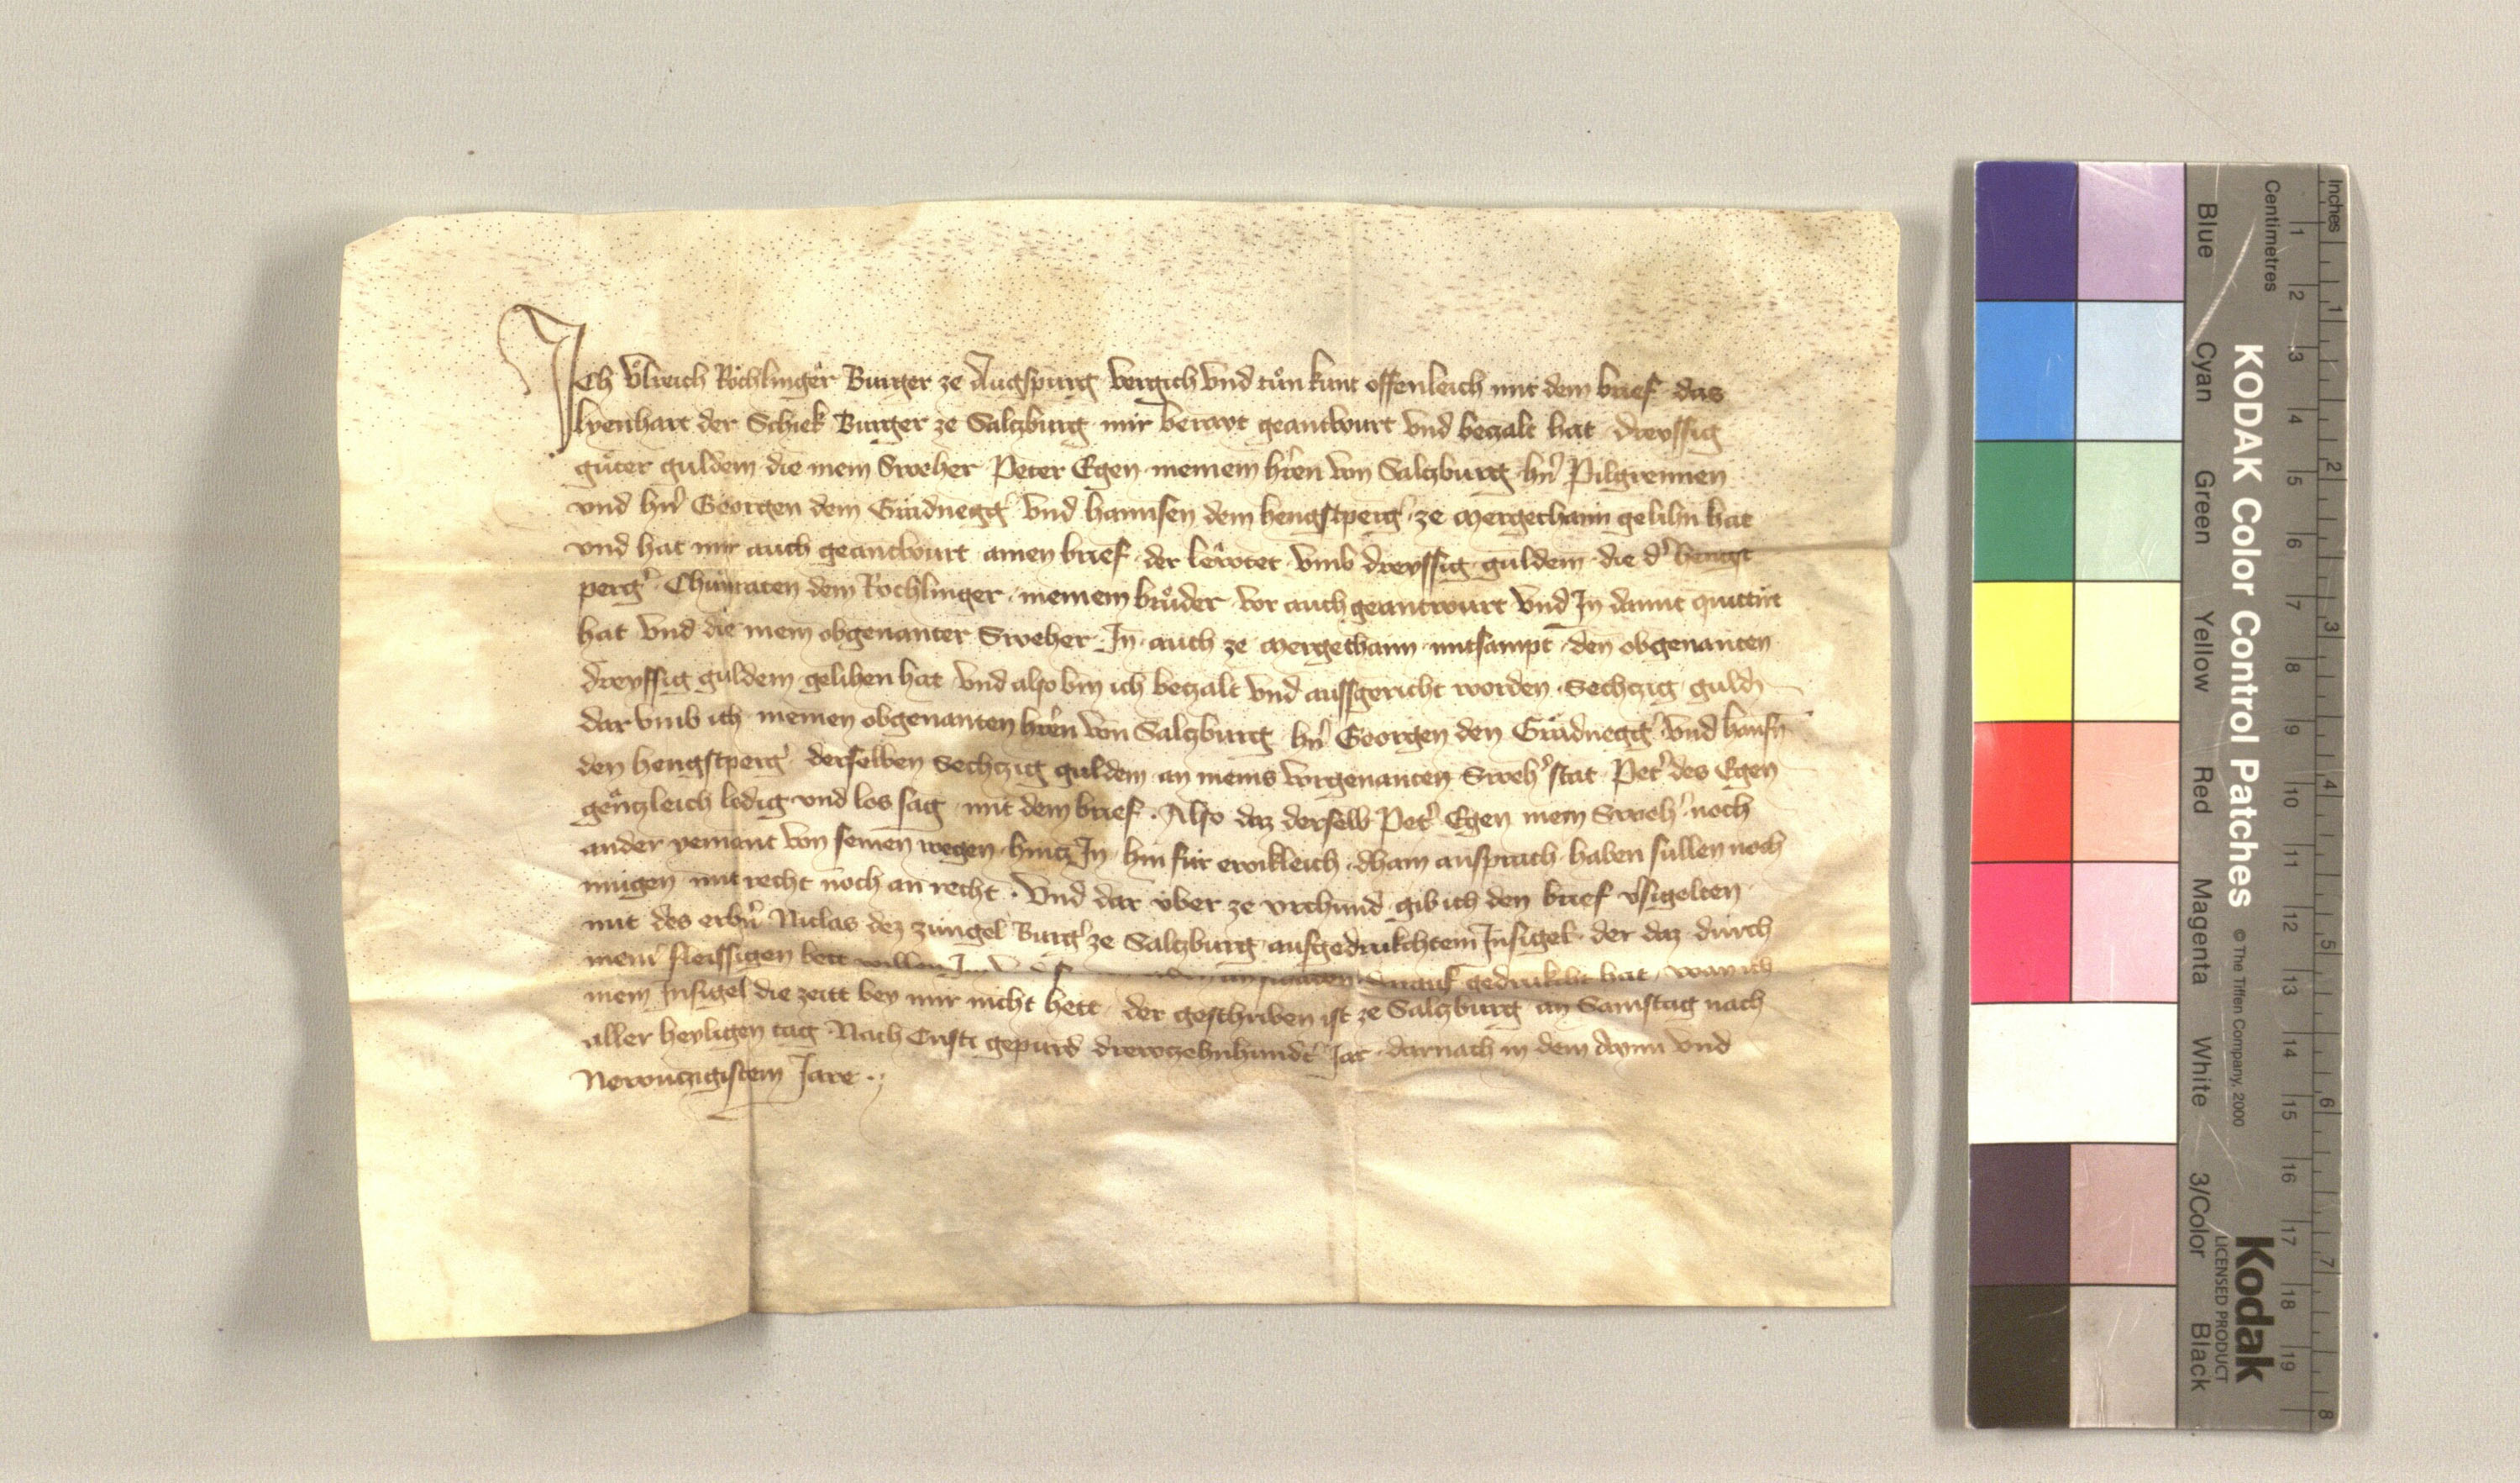 Ich Vlreich Röchlinger Burger ze Augspurg vergich vnd tůn kunt offenleich mit dem brief das
lyenhart der Schiek Burger ze Salczburg mir berayt geantwurt vnd beczalt hat dreyssig
gůter guldein die mein Sweher Peter Egen meinem hr̄en von Salczburg hn̄ Pilgreimen
vnd hn̄ Georgen dem Grädnegḡ vnd hannsen dem hengstperḡ ze Mergethaim gelihn hat
vnd hat mir auch geantwurt ainen brief der lewtet vmb dreyssig guldein die d' hengst
perḡ Chunraten dem Rochlinger meinem brůder vor auch geantwurt vnd In damit quittirt
hat vnd die mein obgenanter Sweher In auch ze Mergethaim mitsampt den obgenanten
dreyssig guldein gelihen hat vnd also bin ich beczalt vnd aussgericht worden Sechczig guldn̄
dar vmb ich meinen obgenanten hr̄en von Salczburg hn̄ Georgen den Grädnegḡ vnd hansn̄
den hengstperḡ derselben Sechczig guldein an meins vorgenanten Sweh's stat Pet' des Egen
gänczleich ledig vnd los sag mit dem brief . Also daz derselb Pet' Egen mein Sweh' noch
ander yemant von seinen wegen hincz In hin für ewikleich dhain ansprach haben sullen noch
mügen mit recht noch an recht . Vnd dar über ze vrchund gib ich den brief v'sigelten
mit des erbn̄ Niclas dez züngel Burg' ze Salczburg aufgedrukchtem Insigel der daz durch
mein' fleissigen bett willen Im darauf gedrukcht hat wan ich
mein Insigel die zeitt bey mir nicht hett der geschriben ist ze Salczburg an Samstag nach
aller heyligen tag Nach Cristi gepurd drewczehnhund't Jar darnach in dem Aynn vnd
Newnczigistem Jare .
Inches
Centimetres
1 2 3 4 5 6 7 8
1 2 3 4 5 6 7 8 9 10 11 12 13 14 15 16 17 18 19
KODAK Color Control Patches
© The Tiffen Company, 2000
Kodak
LICENSED PRODUCT
Blue
Cyan
Green
Yellow
Red
Magenta
White
3/Color
Black